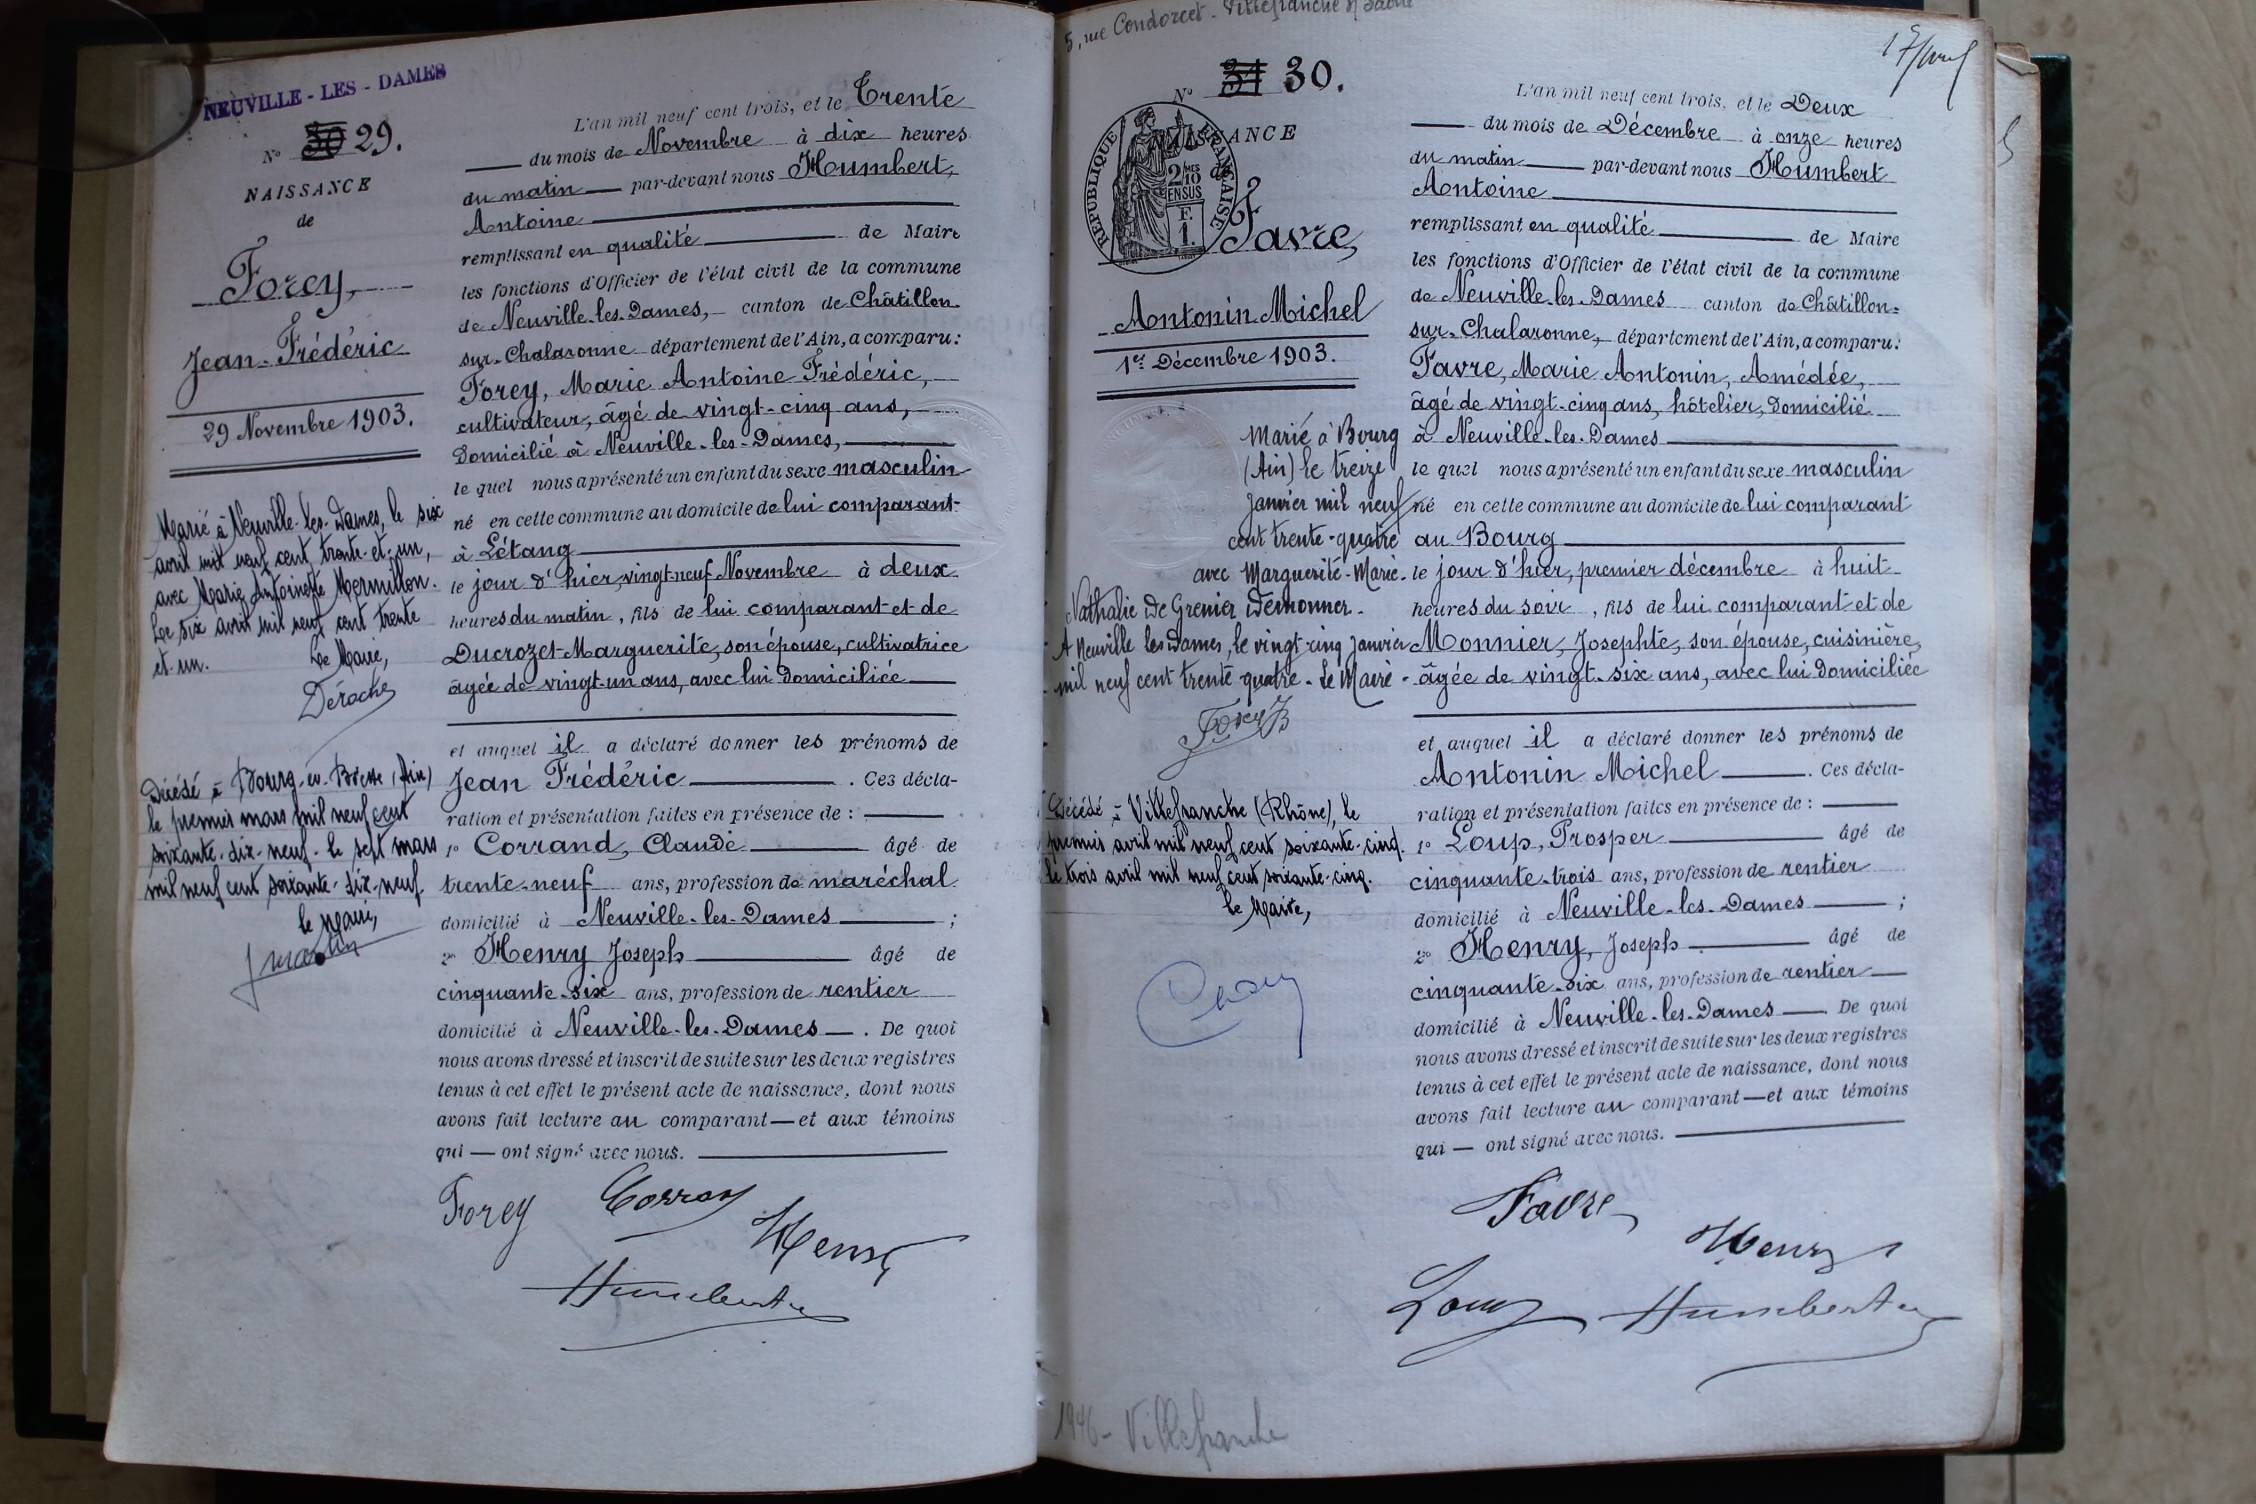 NEUVILLE - LES - DAMES
N° 30 29.
NAISSANCE
de
Forey,
Jean-Frédéric
29 Novembre 1903.
Marié à Neuville-les-Dames, le six
avril mil neuf cent trente-et-un,
avec Marie Antoinette Mermillon.
Le six avril mil neuf cent trente
et-un.
Le Maire,
Déroche
Décédé à Bourg-en-Bresse (Ain)
le premier mars mil neuf cent
soixante-dix-neuf. le sept mars
mil neuf cent soixante-dix-neuf.
le Maire,
L'an mil neuf cent trois, et le Trente
du mois de Novembre à dix heures
du matin par-devant nous Humbert,
Antoine
remplissant en qualité de Maire
les fonctions d'Officier de l'état civil de la commune
de Neuville-les-Dames, canton de Châtillon
sur-Chalaronne département de l'Ain, a comparu:
Forey, Marie Antoine Frédéric,
cultivateur, âgé de vingt-cinq ans,
domicilié à Neuville-les-Dames,
le quel nous a présenté un enfant du sexe masculin
né en cette commune au domicile de lui comparant-
à Létang
le jour d'hier, vingt-neuf Novembre à deux
heures du matin, fils de lui comparant et de
Ducrozet Marguerite, son épouse, cultivatrice
âgée de vingt-un ans, avec lui domiciliée
et auquel il a déclaré donner les prénoms de
Jean Frédéric. Ces décla-
ration et présentation faites en présence de :
1° Corrand, Claude âgé de
trente-neuf ans, profession de maréchal
domicilié à Neuville-les-Dames ;
2° Henry Joseph âgé de
cinquante-six ans, profession de rentier
domicilié à Neuville-les-Dames. De quoi
nous avons dressé et inscrit de suite sur les deux registres
tenus à cet effet le présent acte de naissance, dont nous
avons fait lecture au comparant — et aux témoins
qui — ont signé avec nous.
Forey Henry
Humbert
5, rue Condorcet - Villefranche s/ Saône
N° 31 30.
NAISSANCE
de
RÉPUBLIQUE FRANÇAISE
2/10 EN SUS
F. 1.
Favre,
Antonin Michel
1er Décembre 1903.
Marié à Bourg
(Ain) le treize
janvier mil neuf
cent trente-quatre
avec Marguerite-Marie-
Nathalie De Grenier Demonner.
A Neuville les Dames, le vingt-cinq janvier
mil neuf cent trente-quatre - Le Maire -
Décédé à Villefranche (Rhône), le
premier avril mil neuf cent soixante-cinq.
le trois avril mil neuf cent soixante-cinq.
le Maire,
L'an mil neuf cent trois, et le Deux
du mois de Décembre à onze heures
du matin par-devant nous Humbert
Antoine
remplissant en qualité de Maire
les fonctions d'Officier de l'état civil de la commune
de Neuville-les-Dames canton de Châtillon-
sur-Chalaronne, département de l'Ain, a comparu:
Favre, Marie Antonin, Amédée,
âgé de vingt-cinq ans, hôtelier, domicilié
à Neuville-les-Dames
le quel nous a présenté un enfant du sexe masculin
né en cette commune au domicile de lui comparant
au Bourg
le jour d'hier, premier décembre à huit
heures du soir, fils de lui comparant et de
Monnier, Josephte, son épouse, cuisinière,
âgée de vingt-six ans, avec lui domiciliée
et auquel il a déclaré donner les prénoms de
Antonin Michel. Ces décla-
ration et présentation faites en présence de :
1° Loup, Prosper âgé de
cinquante-trois ans, profession de rentier
domicilié à Neuville-les-Dames ;
2° Henry, Joseph âgé de
cinquante-six ans, profession de rentier
domicilié à Neuville-les-Dames. De quoi
nous avons dressé et inscrit de suite sur les deux registres
tenus à cet effet le présent acte de naissance, dont nous
avons fait lecture au comparant — et aux témoins
qui — ont signé avec nous.
Favre Henry
Loup Humbert
1946 - Villefranche